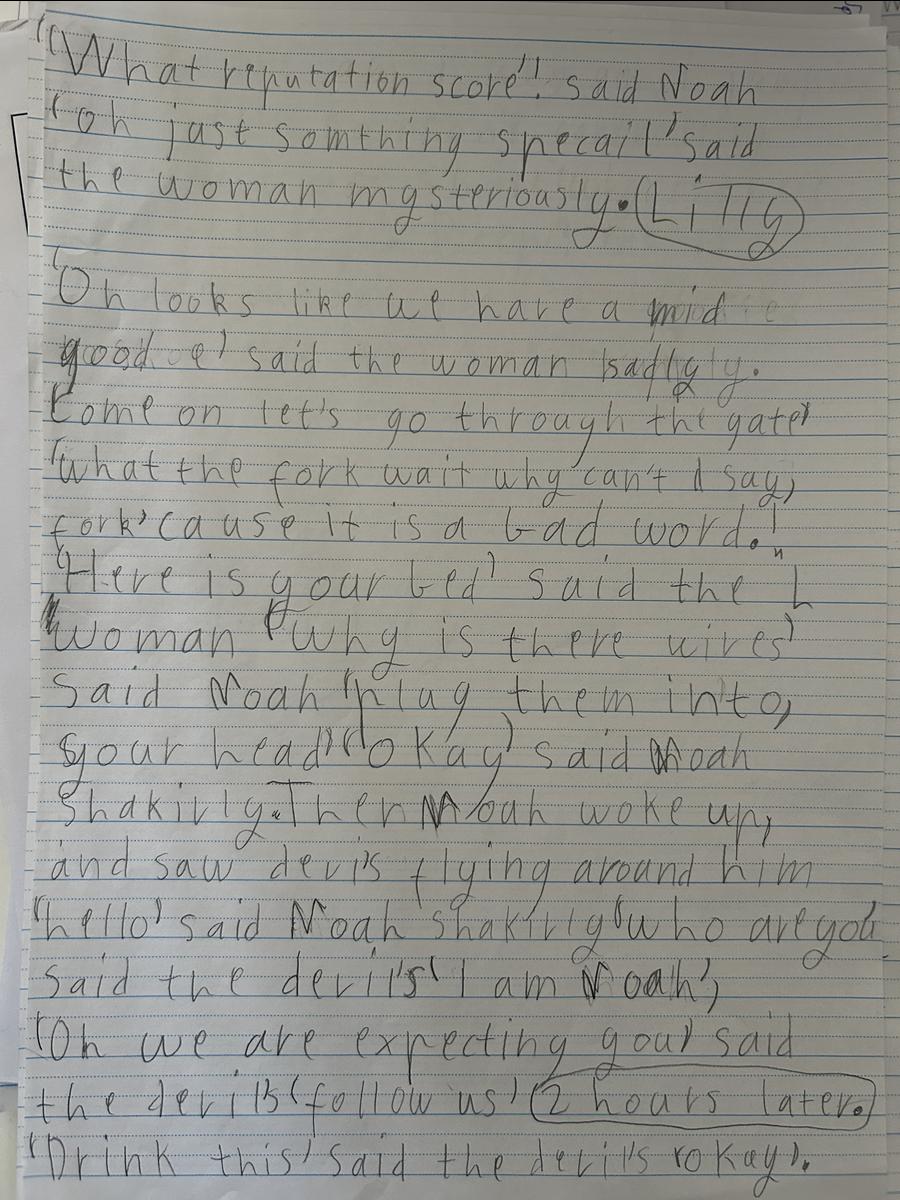 "What reputation score"! said Noah
'oh just somthing specail' said
the woman mysteriously. Lilly
'Oh looks like we have a mid
good e' said the woman sadly.
Come on let's go through the gate'
'what the fork wait why can't I say,
fork' cause it is a bad word.!"
'Here is your bed' said the L
woman 'why is there wires'
said Noah 'plug them into,
your head' 'okay' said Noah
shakirly. Then Noah woke up,
and saw devi's flying around him
'hello' said Noah shakirly 'who are you
said the devil's 'I am Noah',
'Oh we are expecting you' said
the devil's 'follow us' 2 hours later.
'Drink this' said the devil's 'okay'.